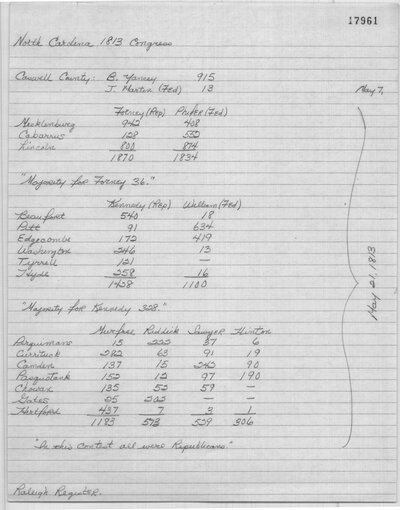 17961
North Carolina 1813 Congress
Caswell County: B. Yancey 915
J. Martin (Fed) 13
May 7,
Forney (Rep) Phifer (Fed)
Mecklenburg 942 408
Cabarrus 128 552
Lincoln 800 874
1870 1834
"Majority for Forney 36."
Kennedy (Rep) William (Fed)
Beaufort 540 18
Pitt 91 634
Edgecombe 172 419
Washington 246 13
Tyrrell 121 —
Hyde 258 16
1428 1100
"Majority for Kennedy 328."
Murfree Riddick Sawyer Hinton
Perquimans 15 222 37 6
Currituck 282 63 91 19
Camden 137 15 242 90
Pasquotank 152 12 97 190
Chowan 135 52 59 —
Gates 25 202 — —
Hertford 437 7 3 1
1183 573 529 306
"In this contest all were Republicans."
May 21, 1813
Raleigh Register.